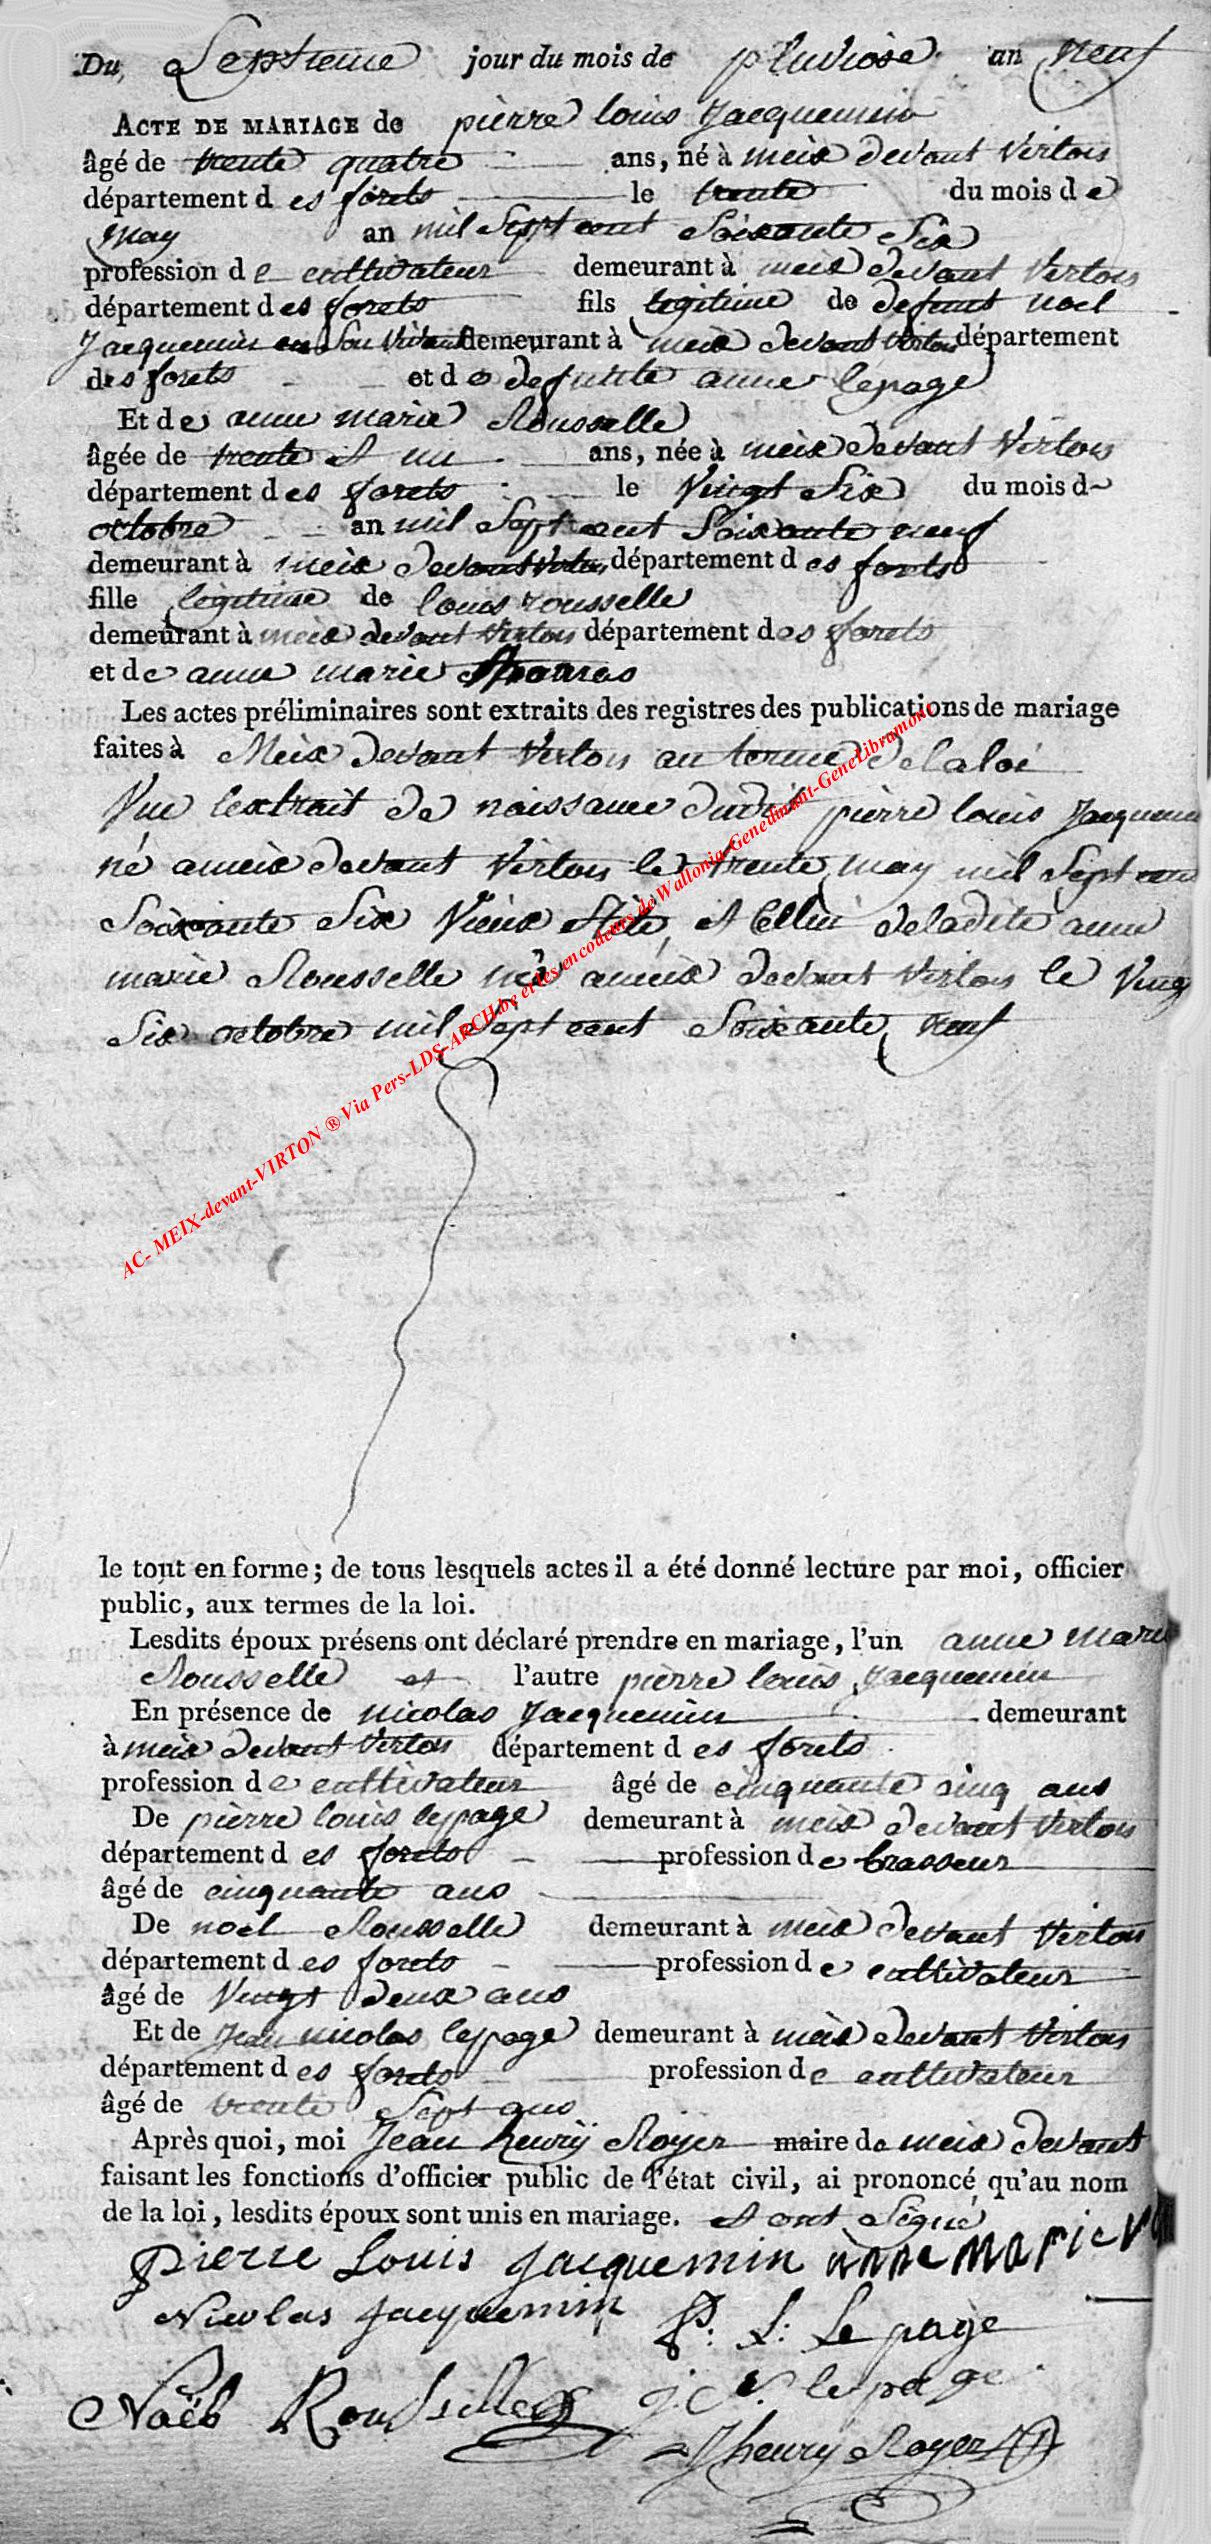 Du, Septieme jour du mois de pluviose an neuf
ACTE DE MARIAGE de pierre louis Jacquemin
âgé de trente quatre ans, né à meix devant Virton
département d es forets le trente du mois d e
may an mil Sept cent Soixante Six
profession d e cultivateur demeurant à meix devant Virton
département d es forets fils legitime de defunt noel
Jacquemin en Son Vivant demeurant à meix devant Virton département
des forets et de defunte anne lepage
Et de anne marie Rousselle
âgée de trente et un ans, née à meix devant Virton
département d es forets le Vingt Six du mois d
octobre an mil Sept cent Soixante neuf
demeurant à meix devant Virton département d es forets
fille légitime de louis rousselle
demeurant à meix devant Virton département des forets
et de anne marie
Les actes préliminaires sont extraits des registres des publications de mariage
faites à Meix devant Virton au terme de la loi
Vue lextrait de naissance dudit pierre louis Jacquemin
né a meix devant Virton le trente may mil Sept cent
Soixante Six Vieux Stile, et Cellui deladite anne
marie Rousselle né a meix devant Virton le Vingt
Six octobre mil Sept cent Soixante neuf
AC- MEIX-devant-VIRTON ® Via Pers-LDS-ARCH.be et les encodeurs de Wallonia-Genedinant-GeneLibramont
le tout en forme; de tous lesquels actes il a été donné lecture par moi, officier
public, aux termes de la loi.
Lesdits époux présens ont déclaré prendre en mariage, l'un anne marie
Rousselle et l'autre pierre louis Jacquemin
En présence de nicolas Jacquemin demeurant
à meix devant Virton département d es forets
profession de cultivateur âgé de cinquante cinq ans
De pierre louis lepage demeurant à meix devant Virton
département d es forets profession de brasseur
âgé de cinquante ans
De noel Rousselle demeurant à meix devant Virton
département d es forets profession de cultivateur
âgé de Vingt deux ans
Et de Jean nicolas lepage demeurant à meix devant Virton
département d es forets profession de cultivateur
âgé de trente Sept ans
Après quoi, moi Jean henrÿ Royer maire de meix devant
faisant les fonctions d'officier public de l'état civil, ai prononcé qu'au nom
de la loi, lesdits époux sont unis en mariage. et ont Signé
Pierre Louis Jacquemin anne marie
Nicolas Jacquemin P: L: Le page
Noël Rousselle J. N. lepage
Jhenrÿ Royer